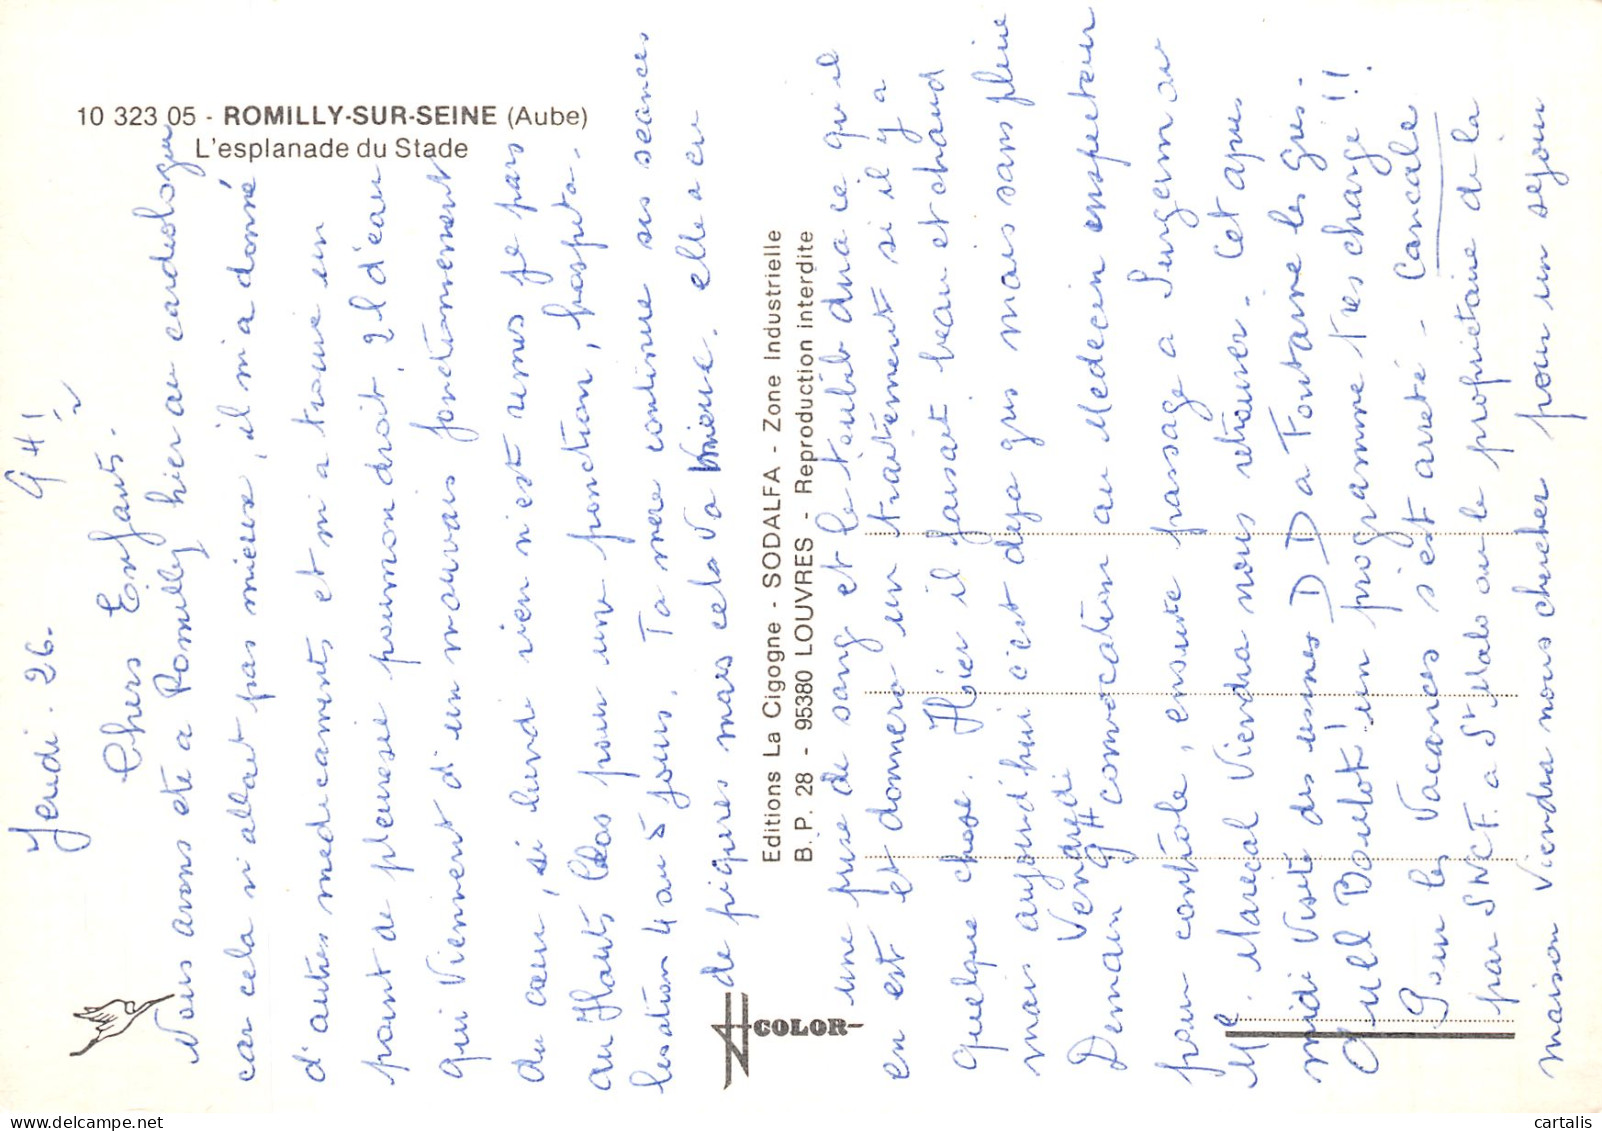 10 323 05 - ROMILLY-SUR-SEINE (Aube)
L'esplanade du Stade
Jeudi. 26. 9 H
Chers Enfants.
Nous avons ete a Romilly hier au cardiologue
car cela n'allait pas mieux, il m'a donné
d'autres medicaments et m'a trouvé un
point de pleuresie poumon droit, 2 l d'eau
qui Viennent d'un mauvais fonctionnement
du cœur, si lundi rien n'est remis je pars
au Hauts Clos pour une ponction, hospita.
4 ou 5 jours. Ta mere continue ses seances
de piqures mais cela va mieux. elle a eu
une prise de sang et le toubib dira ce qu'il
en est et donnera un traitement si il y a
quelque chose. Hier il faisait beau et chaud
mais aujourd'hui c'est deja gris mais sans pluie
Vendredi
Demain 9H convocation au Medecin inspecteur
pour contrôle, ensuite passage a
Me. Marecal Viendra nous retrouver. Cet apres
midi Visite des usines DD a Fontaine les Gres.
Quel Boulot! un programme tres chargé!!
Pour les Vacances s'est arreté - Cancale
par SNCF. a St Malo ou le proprietaire de la
maison Viendra nous chercher pour un sejour
Editions La Cigogne - SODALFA - Zone Industrielle
B. P. 28 - 95380 LOUVRES - Reproduction interdite
COLOR
cartalis